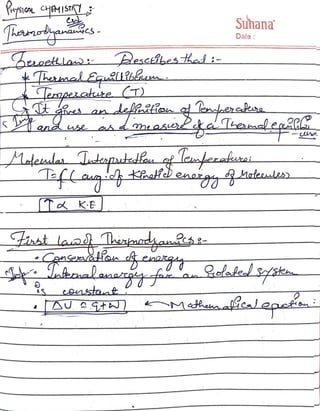 PHYSICAL CHEMISTRY :
Suhana
Date :
Thermodyanamics -
Zerowth law:- Describes that :-
* Thermal Equilibrium
* Temperature (T)
It gives an definition of Temperature
Imp and use as a measure of a Thermal equilib
Molecular Interputation of Temperature:
T = f ( avg. of Kinetic energy of Molecules)
T ∝ K.E
First law of Thermodyanamics :-
• Conservation of energy
Imp • Internal energy for an isolated system
is constant.
• ΔU = q + W ← Mathematical eqaction :